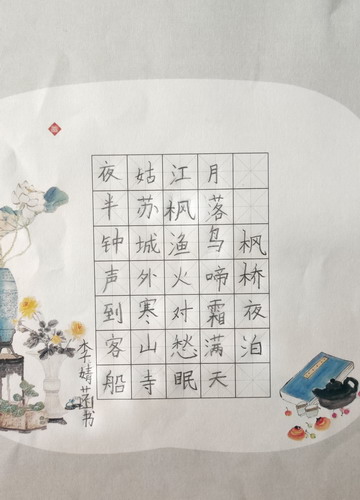 枫桥夜泊
月落鸟啼霜满天
江枫渔火对愁眠
姑苏城外寒山寺
夜半钟声到客船
李婧菡书